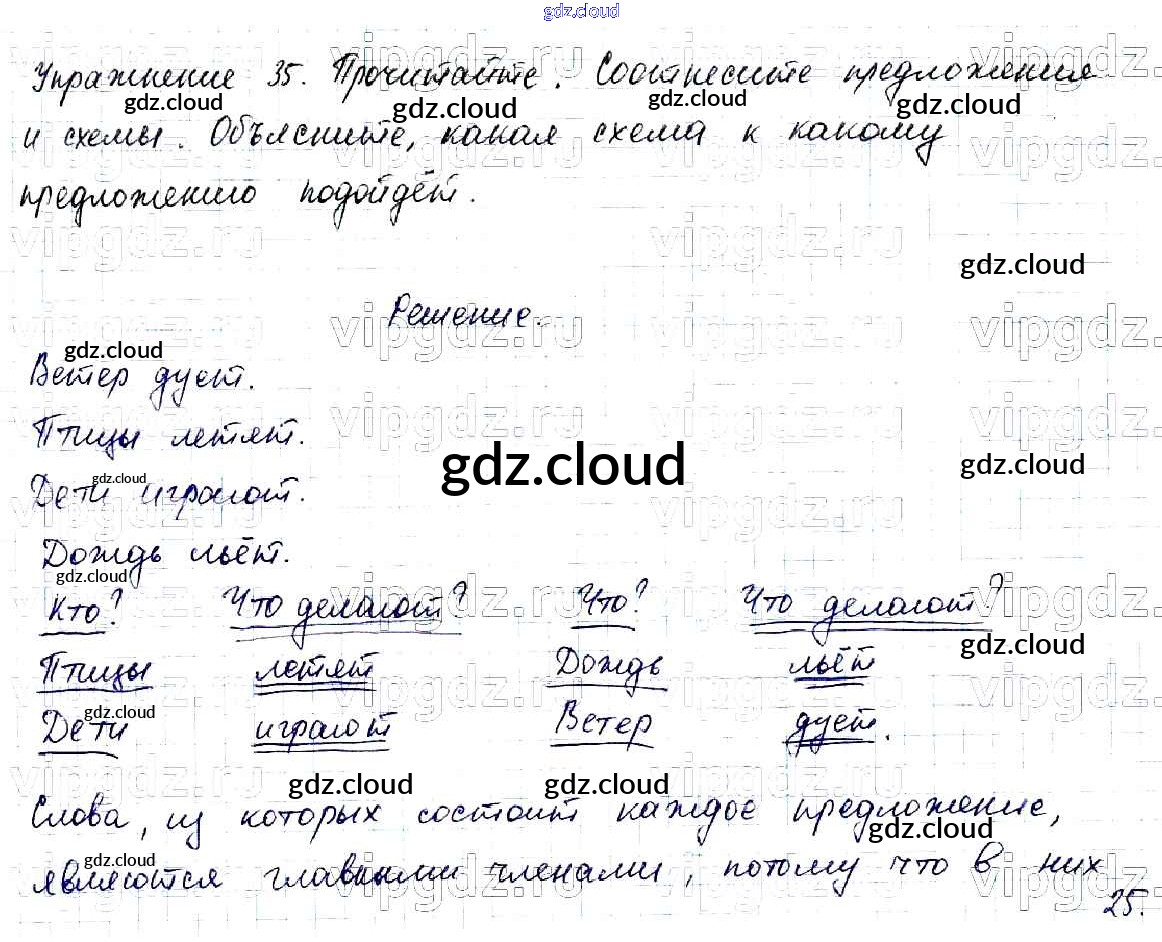 gdz.cloud
Упражнение 35. Прочитайте. Соотнесите предложения
gdz.cloud gdz.cloud gdz.cloud gdz.cloud
и схемы. Объясните, какая схема к какому
предложению подойдёт.
vipgdz.ru vipgdz.ru
gdz.cloud
Решение.
gdz.cloud
Ветер дует.
Птицы летят.
gdz.cloud gdz.cloud
gdz.cloud
Дети играют.
Дождь льёт.
gdz.cloud
Кто? Что делают? Что? Что делают?
gdz.cloud
Птицы летят Дождь льёт
gdz.cloud
Дети играют Ветер дует.
gdz.cloud gdz.cloud
Слова, из которых состоит каждое предложение,
gdz.cloud gdz.cloud
являются главными членами, потому что в них
25.